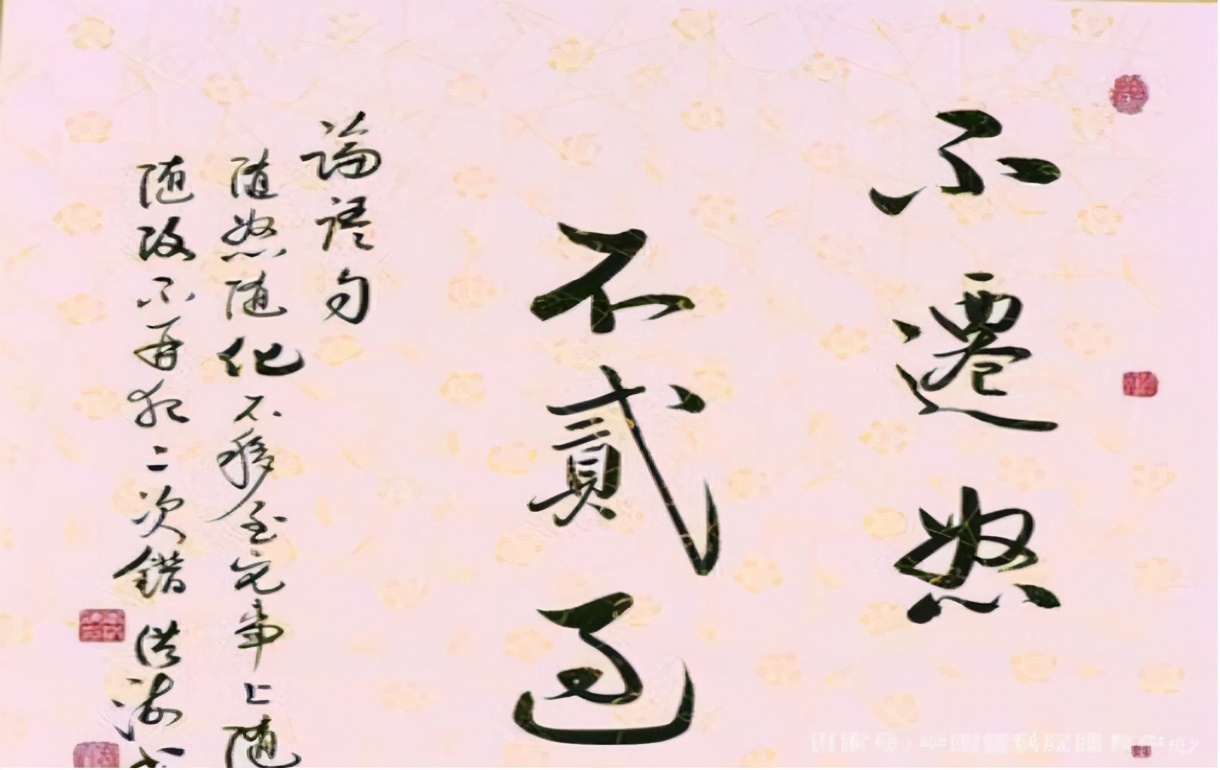 不遷怒
不貳過
論語句
随怒随化不移至它事上随
随改不再犯二次錯洪涛书